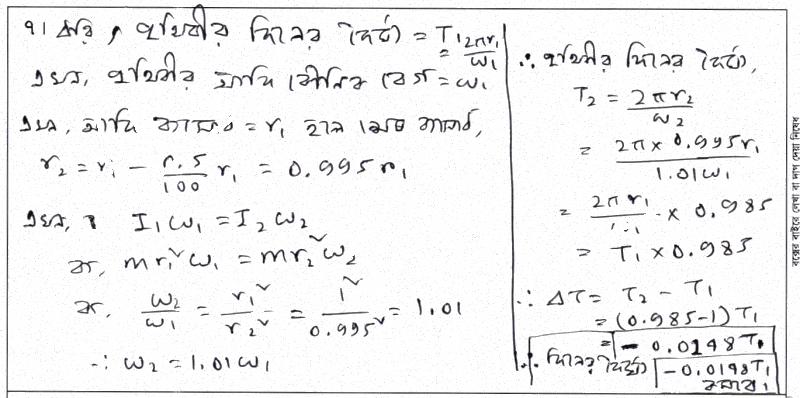 ৭। ধরি, পৃথিবীর দিনের দৈর্ঘ্য = T₁ = 2πr₁/ω₁
এখন, পৃথিবীর আদি কৌনিক বেগ = ω₁
এখন, আদি ব্যাসার্ধ = r₁ হলে শেষ ব্যাসার্ধ,
r₂ = r₁ - r.5/100 r₁ = 0.995 r₁
এখন, I₁ω₁ = I₂ω₂
বা, mr₁²ω₁ = mr₂²ω₂
বা, ω₂/ω₁ = r₁²/r₂² = 1²/0.995² = 1.01
∴ ω₂ = 1.01ω₁
∴ পৃথিবীর দিনের দৈর্ঘ্য,
T₂ = 2πr₂/ω₂
= 2π × 0.995r₁/1.01ω₁
= 2πr₁/ × 0.985
= T₁ × 0.985
∴ ΔT = T₂ - T₁
= (0.985-1)T₁
= - 0.0148T₁
∴ দিনের দৈর্ঘ্য -0.0148T₁
কমবে।
বক্সের বাইরে লেখা বা দাগ দেয়া নিষেধ